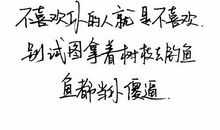 不喜欢你的人就是不喜欢.
别试图拿着树枝去钓鱼
鱼都当你傻逼.